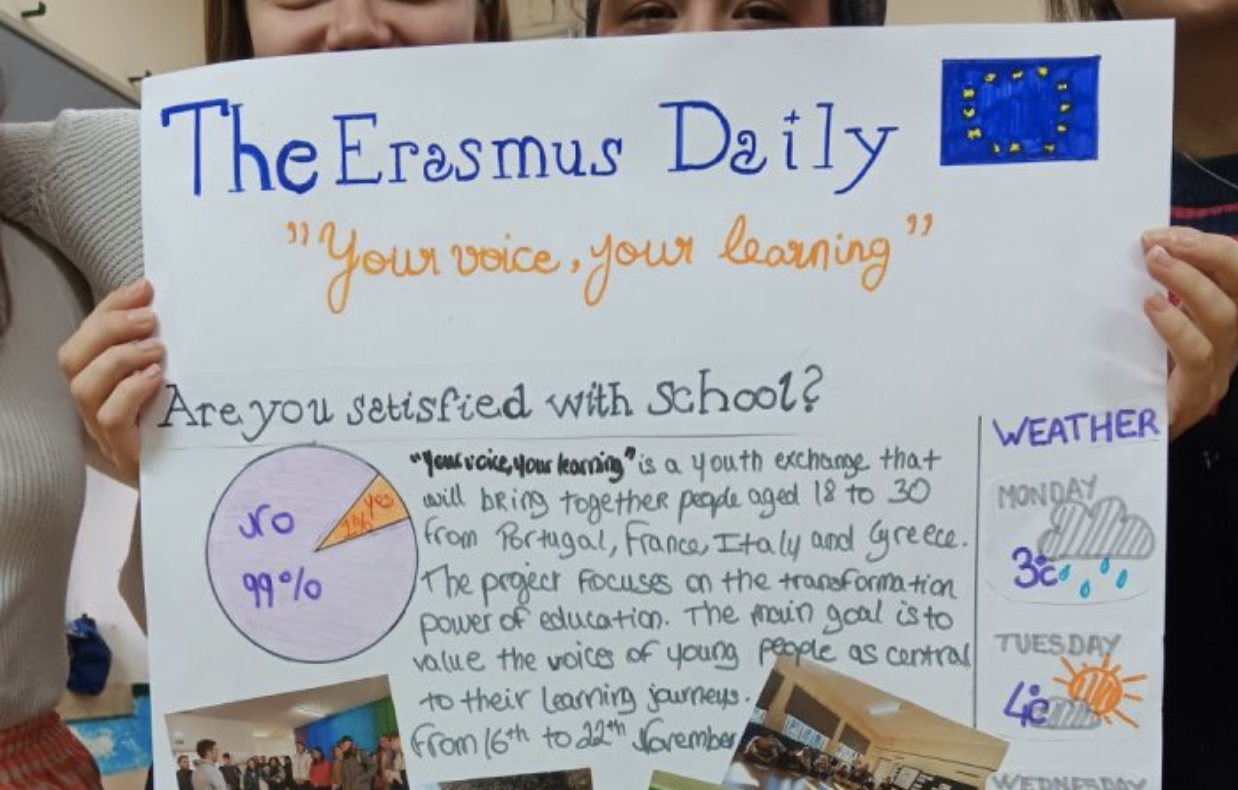 The Erasmus Daily
"Your voice, your learning"
Are you satisfied with school?
No
99%
yes
1%
"Your voice, your learning" is a youth exchange that
will bring together people aged 18 to 30
from Portugal, France, Italy and Greece.
The project focuses on the transformation
power of education. The main goal is to
value the voices of young people as central
to their learning journeys.
From 16th to 22th November
WEATHER
MONDAY
3°c
TUESDAY
4°c
WEDNESDAY